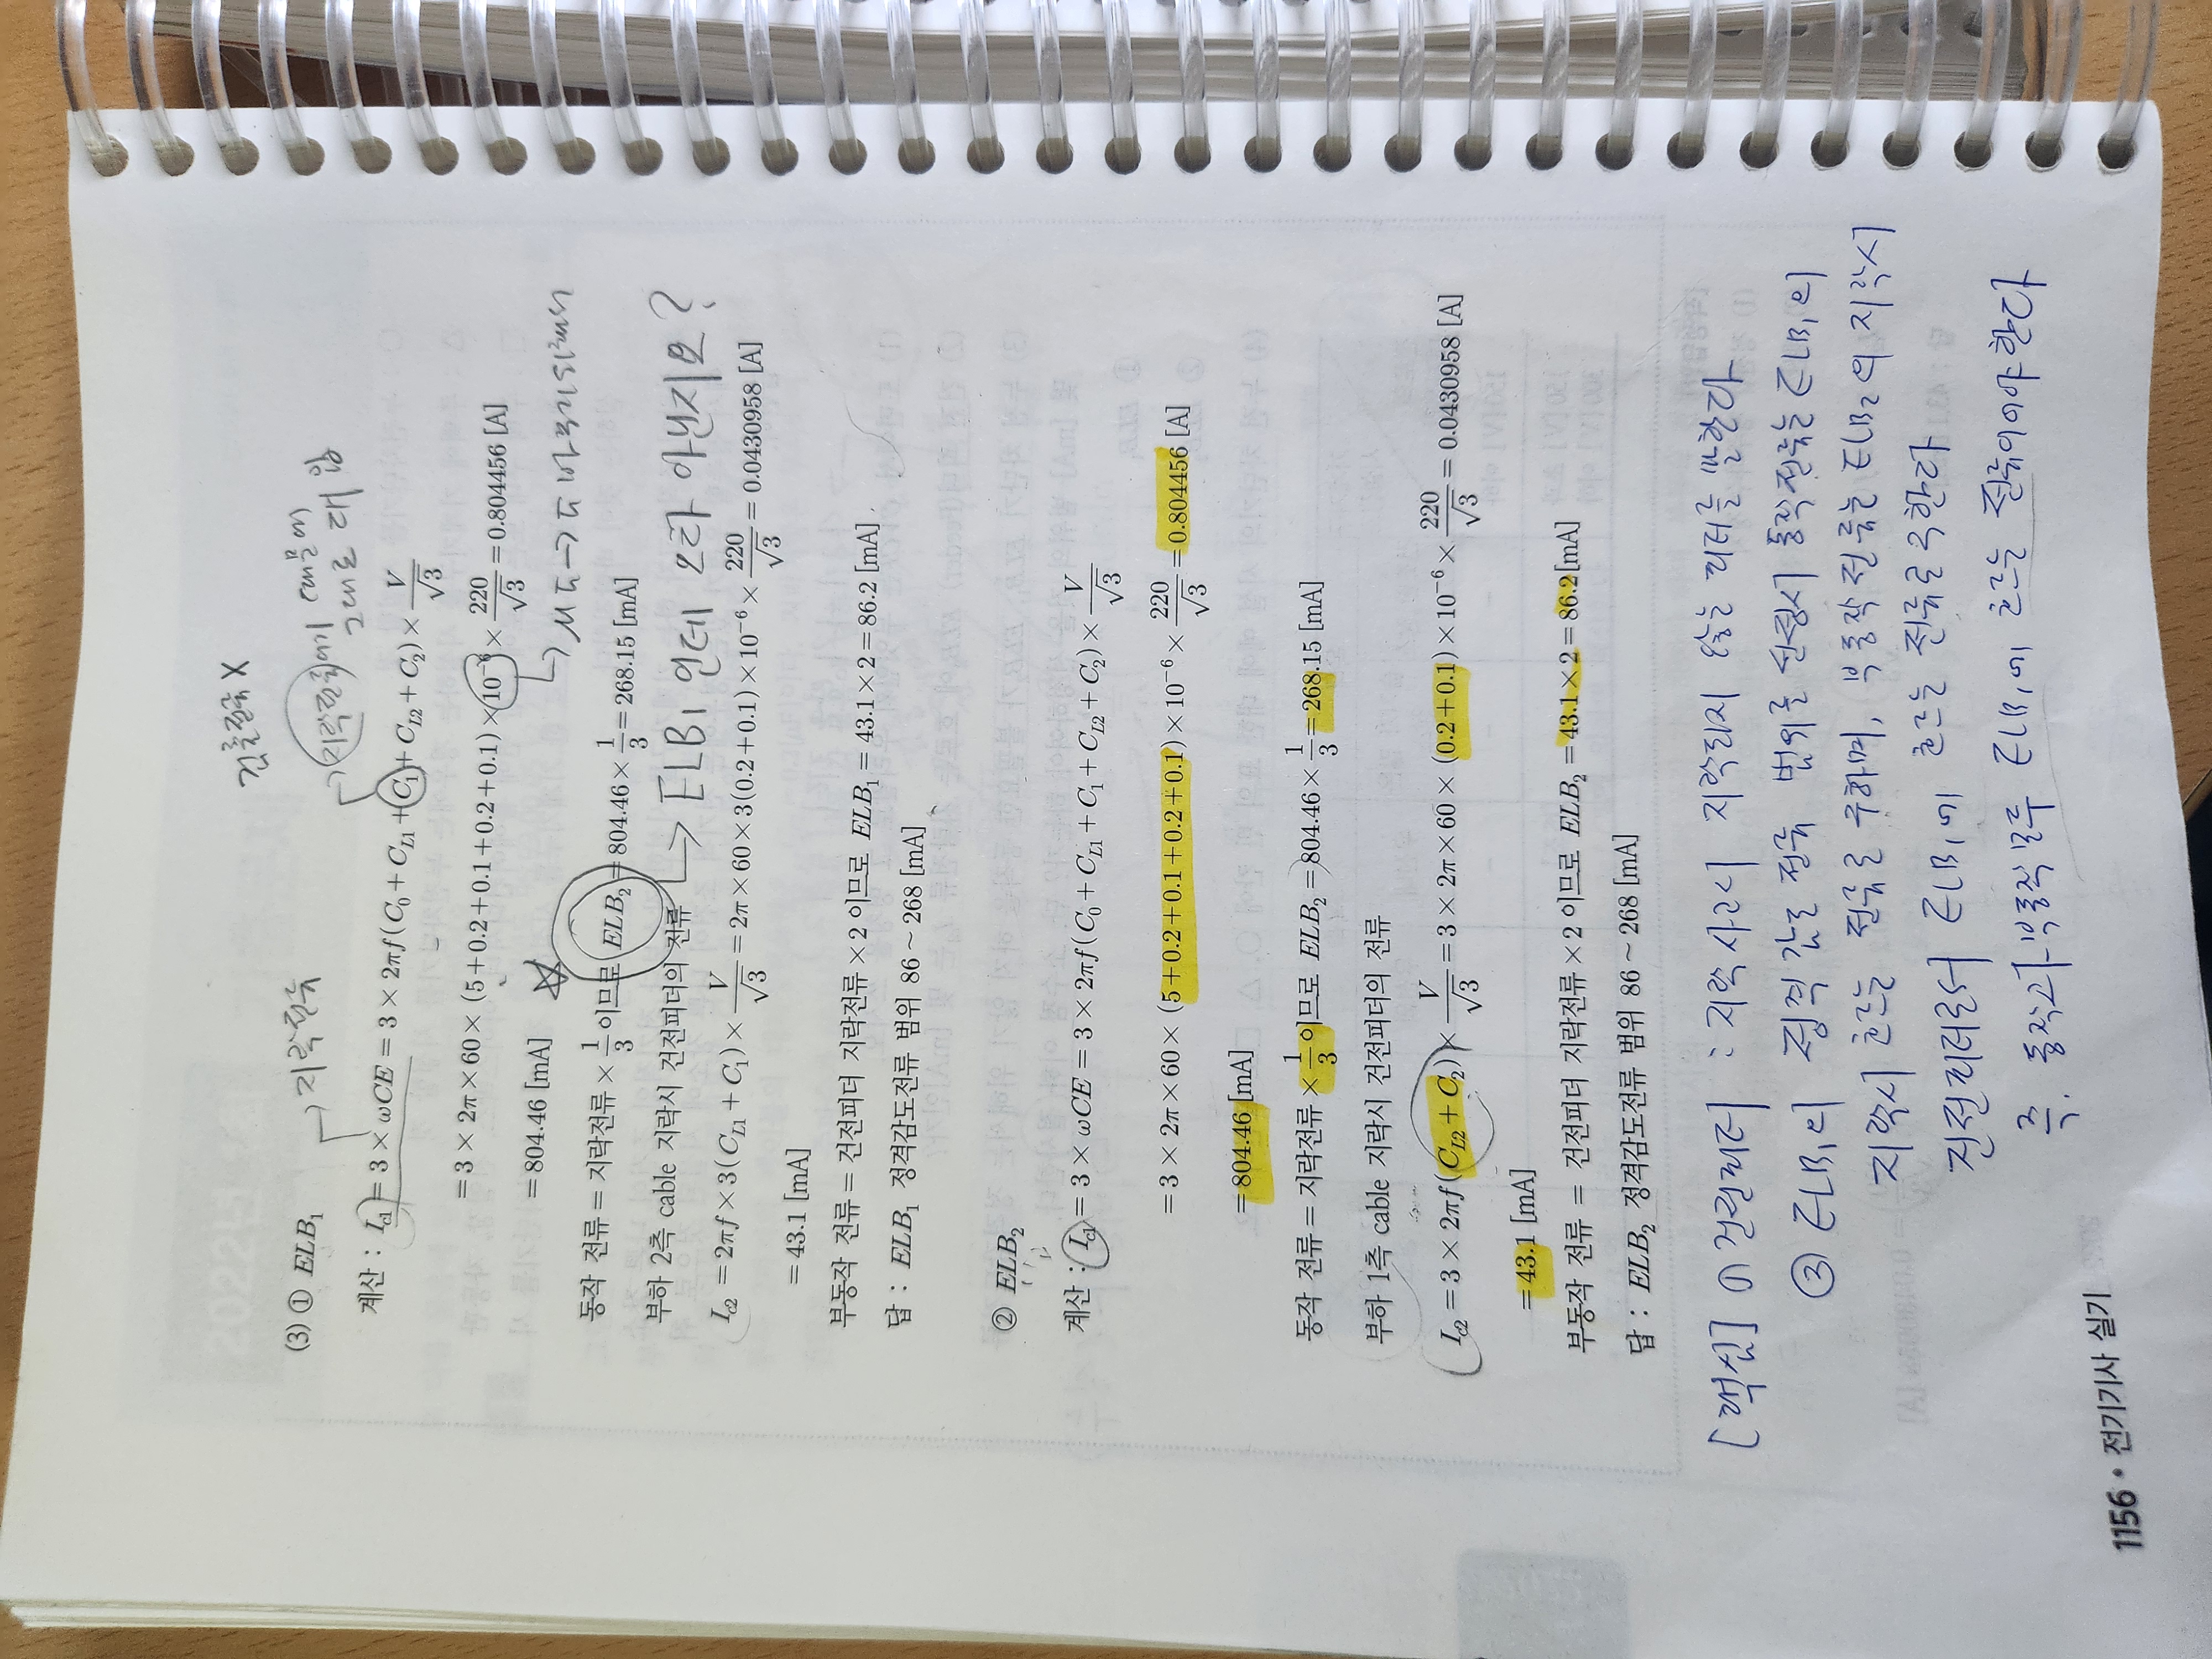 건전전류 X
(3) ① ELB₁
→ 지락전류
지락전류이기 때문에
그대로 대입
계산 : I_c1 = 3 × ωCE = 3 × 2πf(C₀ + C_L1 + C₁ + C_L2 + C₂) × V/√3
= 3 × 2π × 60 × (5 + 0.2 + 0.1 + 0.2 + 0.1) × 10⁻⁶ × 220/√3 = 0.804456 [A]
= 804.46 [mA]
동작 전류 = 지락전류 × 1/3 이므로 ELB₂ = 804.46 × 1/3 = 268.15 [mA]
→ ELB1 인데 오타 아닌지요?
부하 2측 cable 지락시 건전피더의 전류
I_c2 = 2πf × 3(C_L1 + C₁) × V/√3 = 2π × 60 × 3(0.2 + 0.1) × 10⁻⁶ × 220/√3 = 0.0430958 [A]
= 43.1 [mA]
부동작 전류 = 건전피더 지락전류 × 2 이므로 ELB₁ = 43.1 × 2 = 86.2 [mA]
답 : ELB₁ 정격감도전류 범위 86 ~ 268 [mA]
② ELB₂
계산 : I_c1 = 3 × ωCE = 3 × 2πf(C₀ + C_L1 + C₁ + C_L2 + C₂) × V/√3
= 3 × 2π × 60 × (5 + 0.2 + 0.1 + 0.2 + 0.1) × 10⁻⁶ × 220/√3 = 0.804456 [A]
= 804.46 [mA]
동작 전류 = 지락전류 × 1/3 이므로 ELB₂ = 804.46 × 1/3 = 268.15 [mA]
부하 1측 cable 지락시 건전피더의 전류
I_c2 = 3 × 2πf(C_L2 + C₂) × V/√3 = 3 × 2π × 60 × (0.2 + 0.1) × 10⁻⁶ × 220/√3 = 0.0430958 [A]
= 43.1 [mA]
부동작 전류 = 건전피더 지락전류 × 2 이므로 ELB₂ = 43.1 × 2 = 86.2 [mA]
답 : ELB₂ 정격감도전류 범위 86 ~ 268 [mA]
[핵심] 건전피더 : 지락 사고시 지락되지 않는 피더를 말한다
③ ELB₁의 정격 감도 전류 범위를 선정시 동작전류는 ELB₁의
지락시 흐르는 전류를 구하며, 부동작 전류는 ELB₂의 지락시
건전피더로서 ELB₁에 흐르는 전류로 구한다
즉, 동작과 부동작 모두 ELB₁에 흐르는 전류이어야 한다
1156 • 전기기사 실기